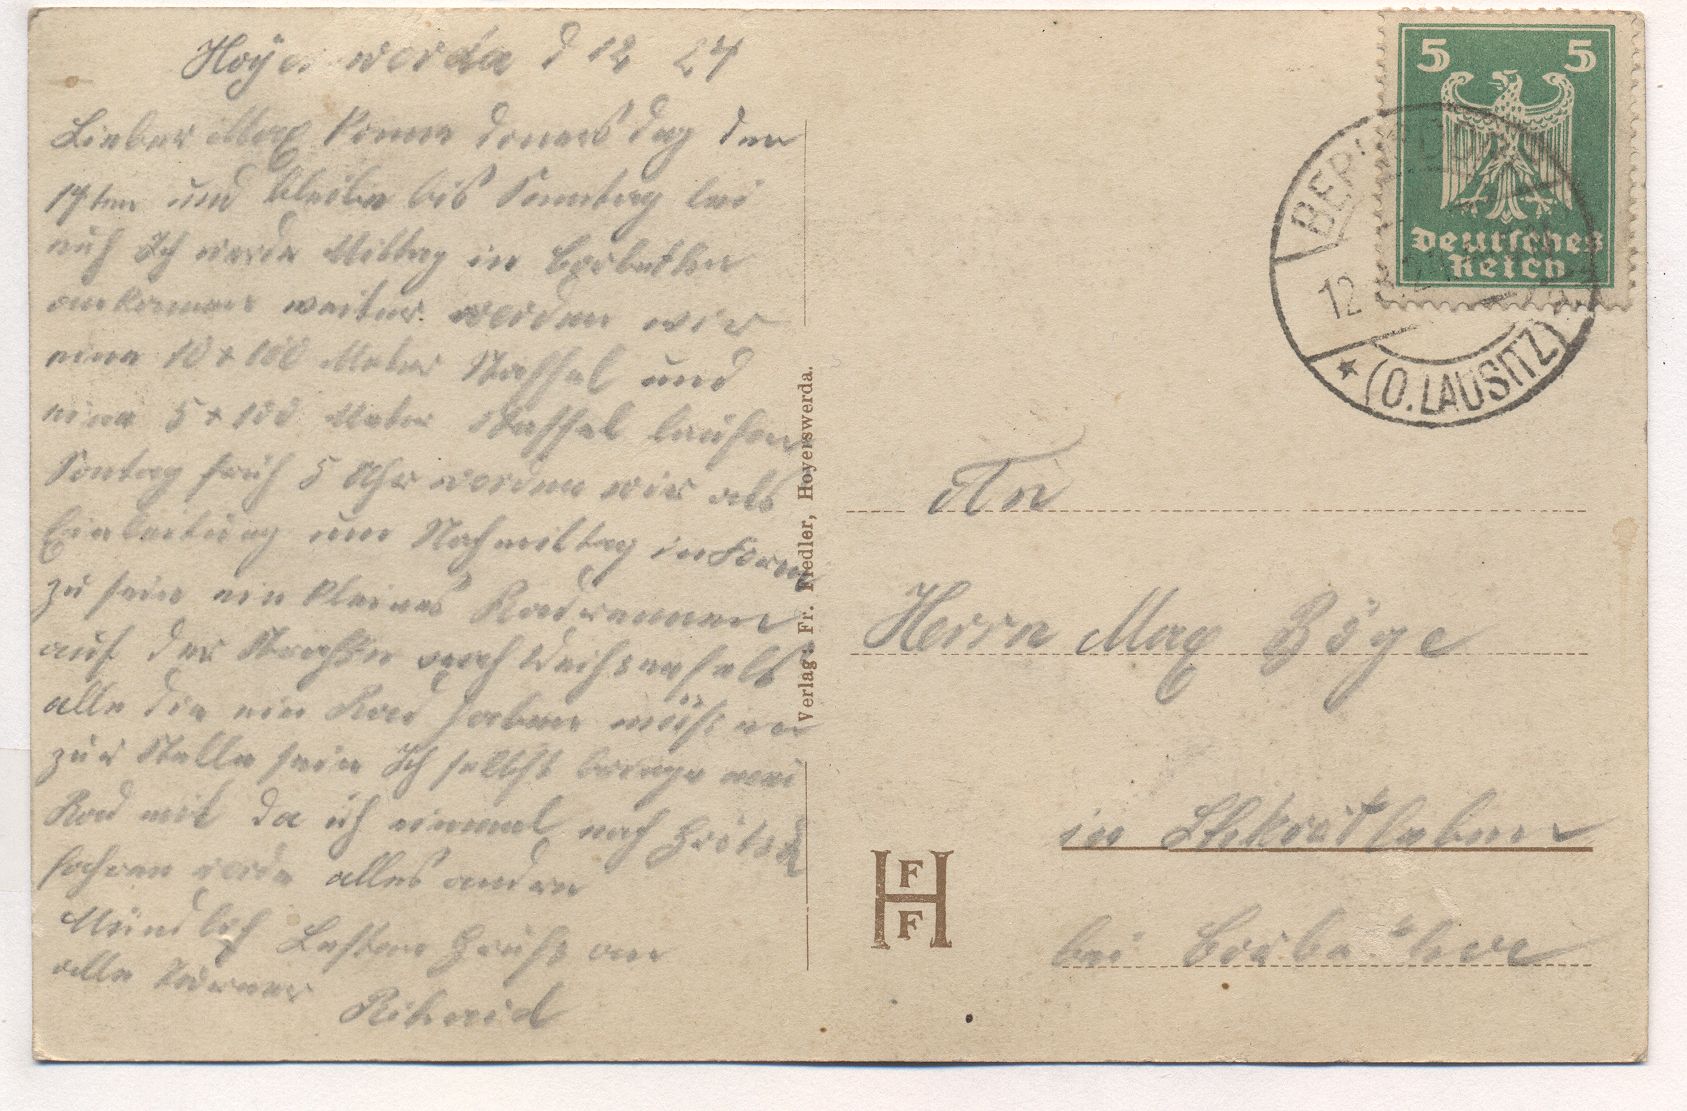 Hoyerswerda d 12 24
Lieber Max komme donersdag den
17ten und bleibe bis Sonntag bei
euch Ich werde Mittag in Corbetha
ankommen weiter werden wir
eine 10 x 100 Meter Staffel und
eine 5 x 100 Meter Staffel laufen
Sontag früh 5 Uhr werden wir als
Einleitung um Nachmittag in Form
zu sein ein kleines Radrennen
auf der Straße nach Weißenfels
alle die ein Rad haben müßen
zur Stelle sein Ich selbst bringe mei
Rad mit da ich einmal nach
fahren werde alles andre
Mündlich Besten Gruß an
alle Turner Rihard
Verlag: Fr. Fiedler, Hoyerswerda.
5 5
Deutsches
Reich
12
(O. LAUSITZ)
An
Herrn Max Böge
in
bei Corbetha
H F F